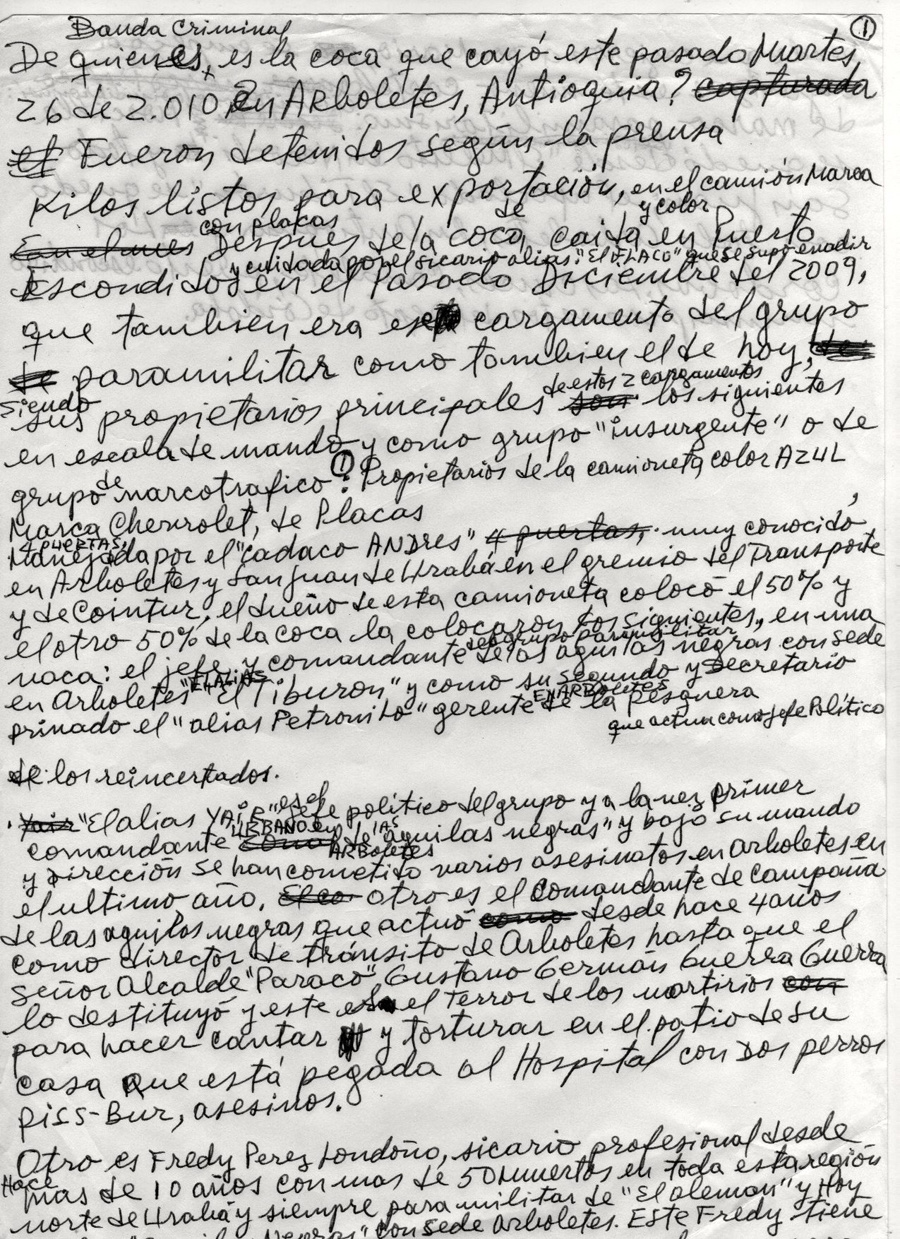 Banda Criminal
①
De quienes, es la coca que cayó este pasado Martes,
26 de 2.010 En Arboletes, Antioquia? capturada
el Fueron detenidos según la prensa
Kilos listos para exportación, en el camión Marca
con placas de y color
En el mes Despues de la coca caida en Puerto
y cuidada por el sicario alias "El FLACO" que se supo evadir
Escondido, en el Pasado Diciembre del 2009,
que tambien era cargamento del grupo
de paramilitar como tombien el de hoy, de
siendo de estos 2 cargamentos
sus propietarios principales son los siguientes
en escala de mando y como grupo "insurgente" o de
grupo de narcotrafico: ① Propietarios de la camioneta color AZUL
Marca Chevrolet, de Placas ,
4 PUERTAS,
Manejada por el "cadaco ANDRES" 4 puertas, muy conocido
en Arboletes y San Juan de Urabá en el gremio del Transporte
y de Cointur, el dueño de esta camioneta colocó el 50% y
el otro 50% de la coca la colocaron los siguientes, en una
del grupo paramilitar
vaca: el jefe y comandante de las aguilas negras con sede
en Arboletes "El ALIAS El Tiburon" y como su segundo y Secretario
EN ARBOLETES
privado el "alias Petronito" gerente de la pesquera
que actua como jefe Político
de los reincertados.
. Yair "El alias YAIR" es el jefe politico del grupo y a la vez primer
comandante URBANO en Arboletes como de las "aguilas negras" y bajo su mando
y Dirección se han cometido varios asesinatos en arboletes en
el ultimo año. El co otro es el Comandante de campaña
de las aguilas negras que actuó como desde hace 4 años
como director de tránsito de Arboletes hasta que el
Señor Alcalde "Paraco" Gustavo Germán Guerra Guerra
lo destituyó y este es el terror de los martirios con
para hacer cantar y torturar en el patio de su
casa que está pegada al Hospital con Dos perros
Piss-Bur, asesinos.
Otro es Fredy Perez Londoño, sicario profesional desde
Hace
mas de 10 años con mas de 50 muertos en toda esta región
norte de Urabá y siempre paramilitar de "El aleman" y Hoy
Negras" con sede Arboletes. Este Fredy tiene